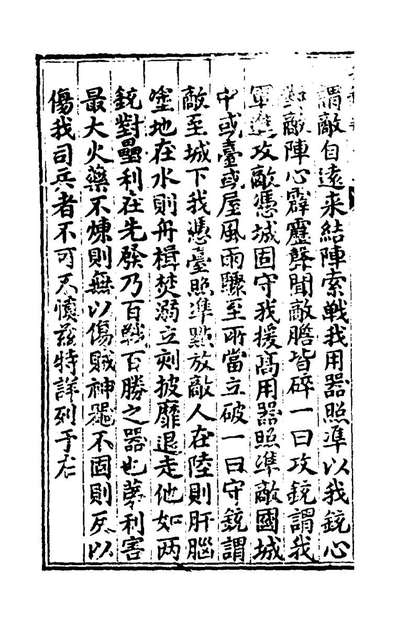 謂敵自遠來結陣索戰我用器照準以我銃心
對敵陣心霹靂聲聞敵膽皆碎一曰攻銃謂我
軍進攻敵憑城固守我援高用器照準敵國城
中或臺或屋風雨驟至所當立破一曰守銃謂
敵至城下我憑臺照準點放敵人在陸則肝腦
塗地在水則舟楫焚溺立刻披靡退走他如兩
銃對壘利在先發乃百戰百勝之器也第利害
最大火藥不煉則無以傷賊神器不固則反以
傷我司兵者不可不慎茲特詳列于左